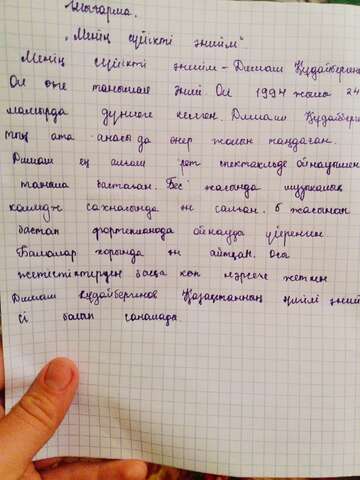 Шығарма.
„Менің сүйікті әншім"
Менің сүйікті әншім - Димаш Құдайберген
Ол өте танымал әнші Ол 1994 жылы 24
мамырда дүниеге келген. Димаш Құдайберг
тың ата - анасы да өнер жолын таңдаған.
Димаш ең алғаш рет спектакльде ойнауымен
таныла бастаған. Бес жасында музыкалық
колледж сахнасында ән салған. 6 жасынан
бастап фортепианода ойнауды үйренген
Балалар хорында ән айтқан. Осы
жетістіктерден басқа көп нәрсеге жеткен
Димаш Құдайбергенов Қазақстанның әнші
сі болап саналада